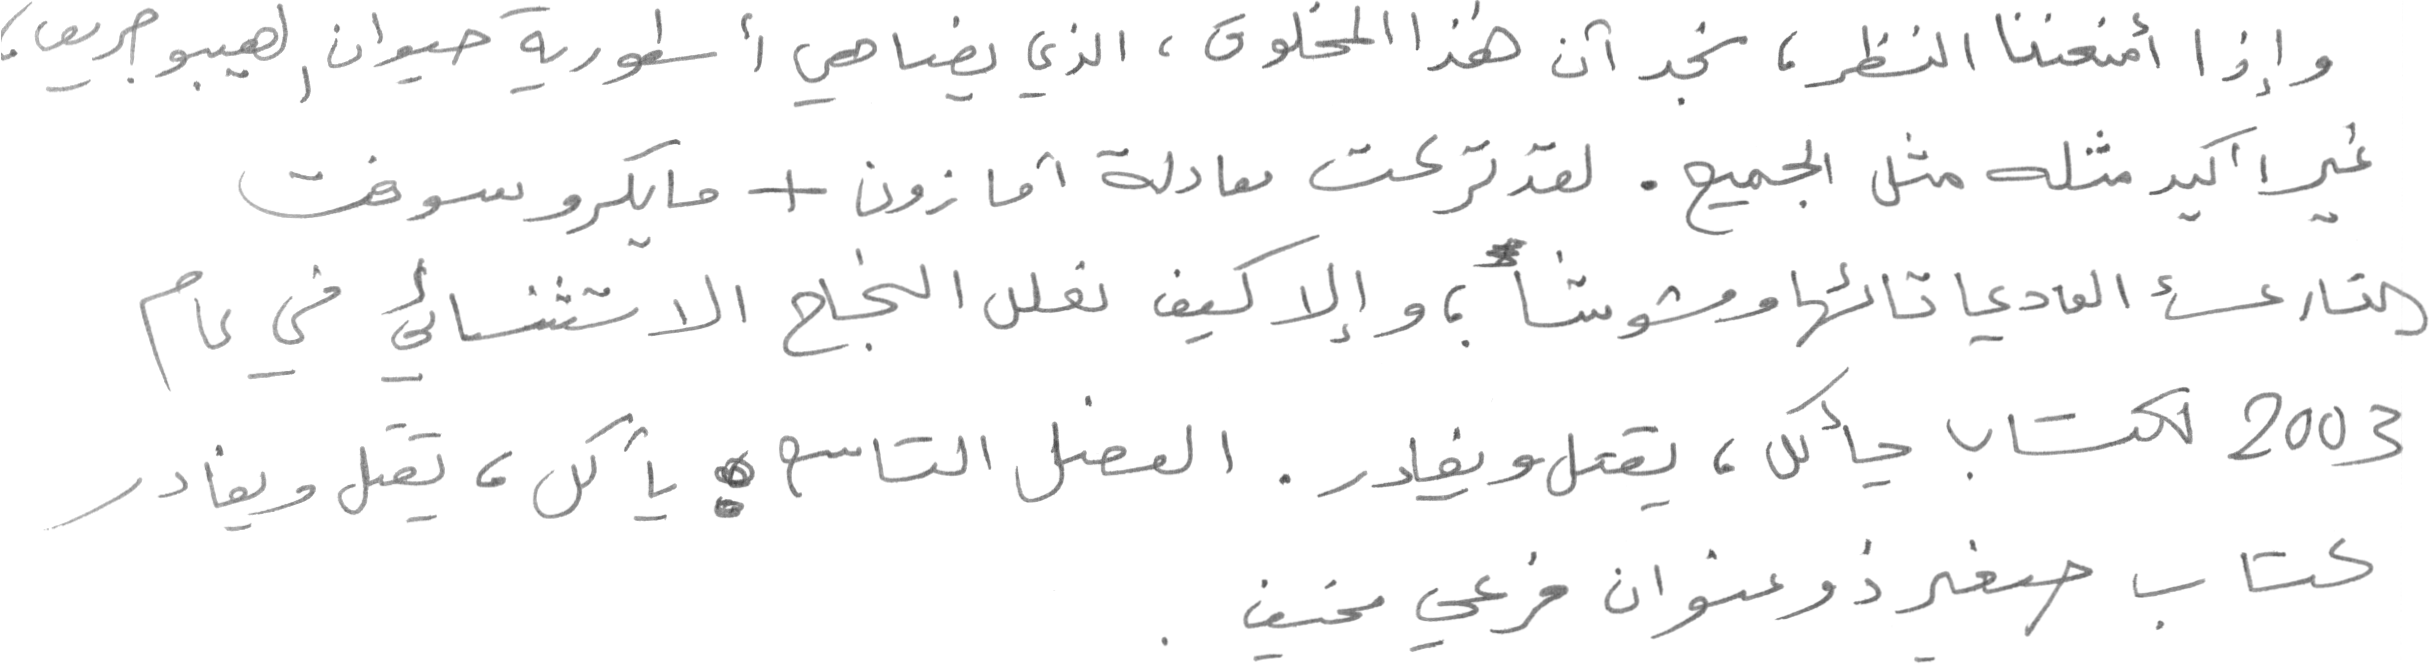 وإذا أمنعننا النظر، نجد أن هذا المخلوق، الذي يضاهي أسطورية حيوان الهيبوجريف،
غير أكيد مثله مثل الجميع. لقد تركت معادلة أمازون + مايكروسوفت
القارئ العادي تائها ومشوشاً؛ وإلا كيف نعلل النجاح الاستثنائي في عام
2003 لكتاب يأكل، يقتل ويغادر. الفصل التاسع: يأكل، يقتل ويغادر
كتاب صغير ذو عنوان فرعي مخيف.